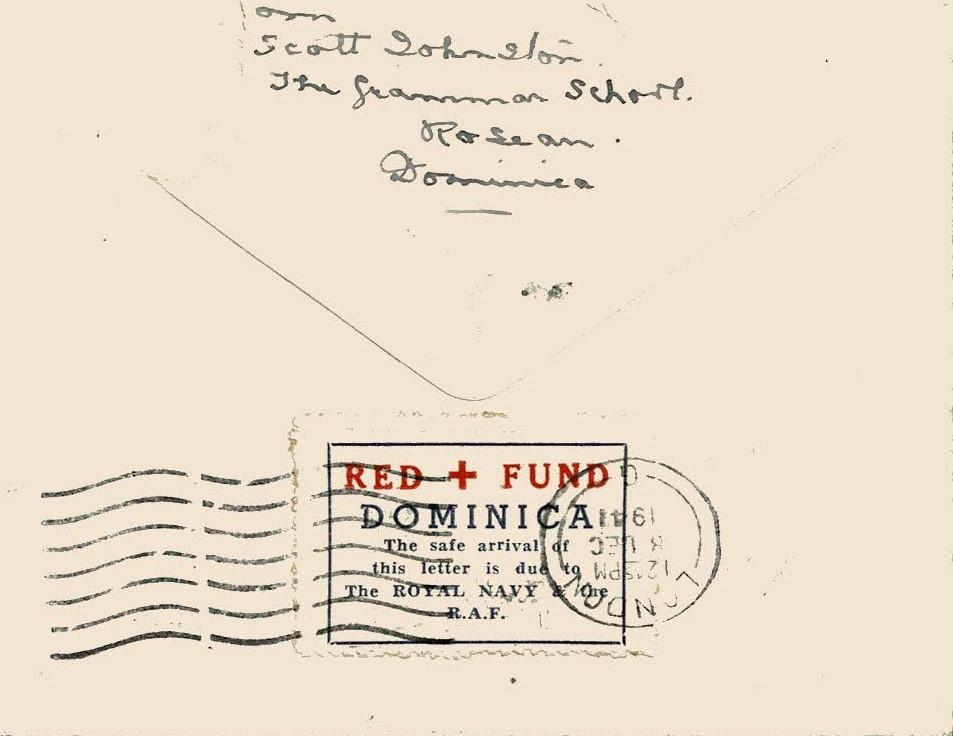 Scott Johnston.
The Grammar School.
Roseau.
Dominica
RED + FUND
DOMINICA
The safe arrival of
this letter is due to
The ROYAL NAVY & the
R.A.F.
LONDON
12:15PM
8 DEC
1941